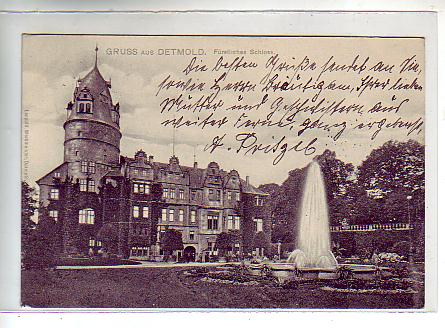 GRUSS AUS DETMOLD. Fürstliches Schloss.
Die besten Grüße sendet an Sie,
sowie Herrn Bräutigam, Ihrer lieben
Mutter und Geschwistern aus
weiter Ferne, ganz ergebenst
A. Pretzel